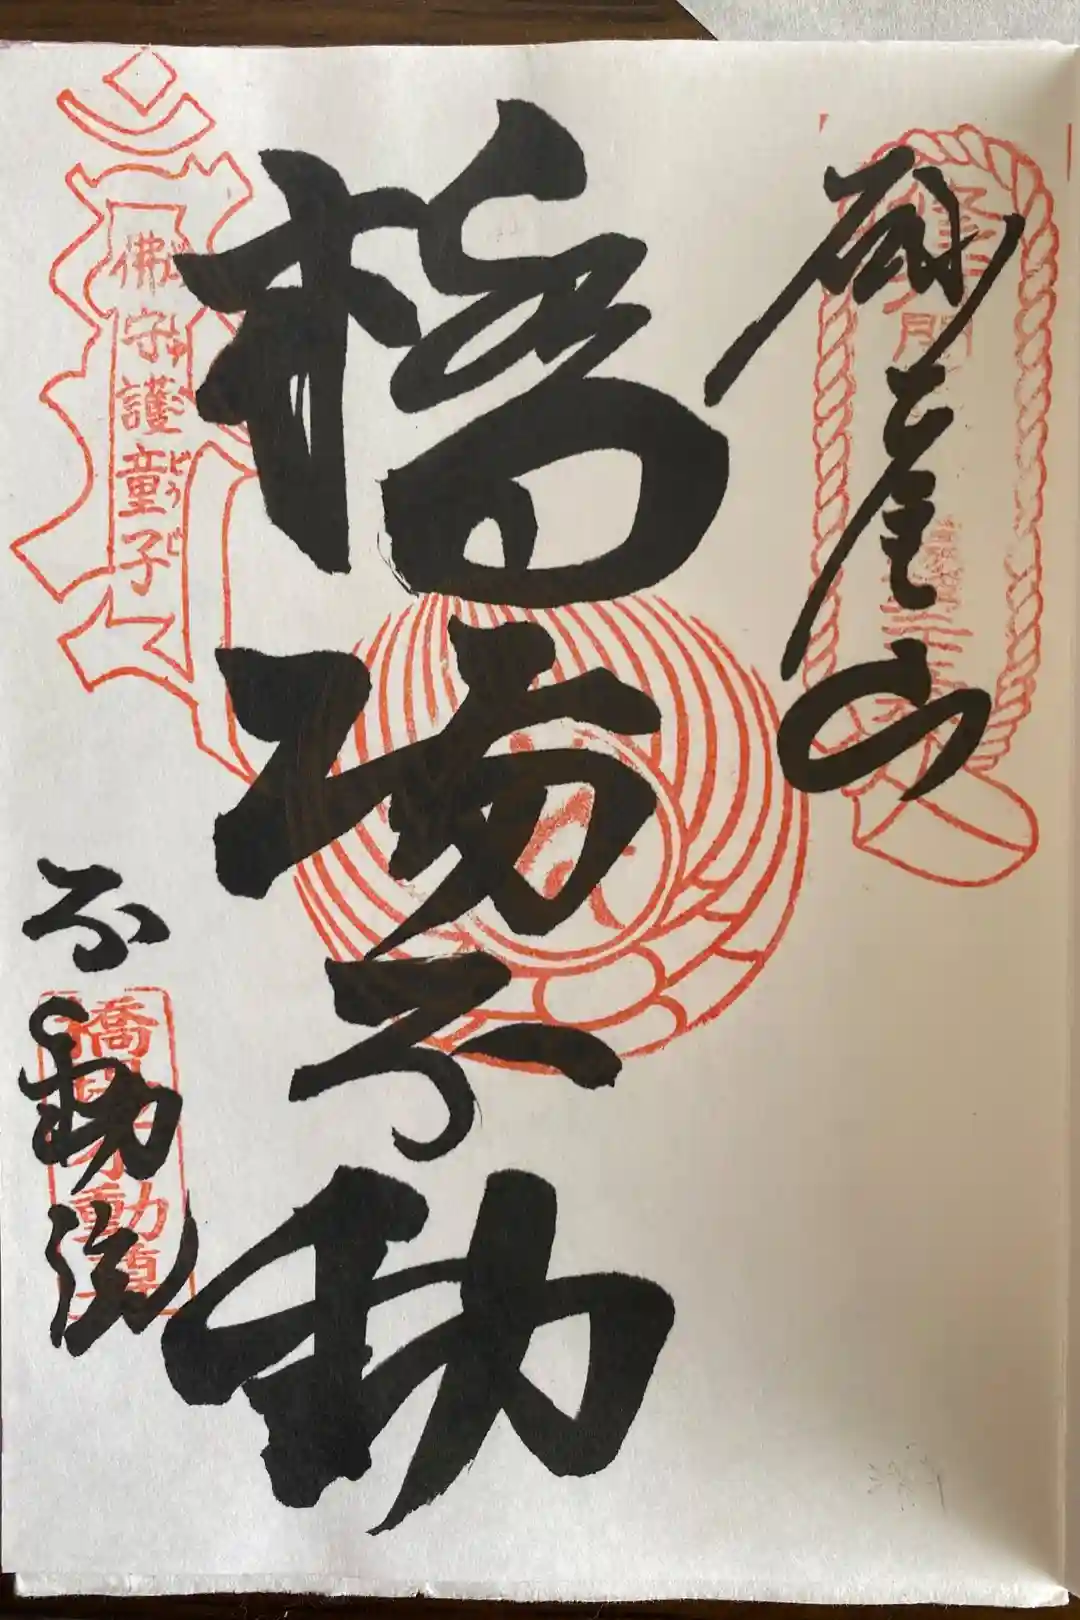 砂尾山
橋場不動
佛守護童子
どうじ
不動院
橋場不動尊